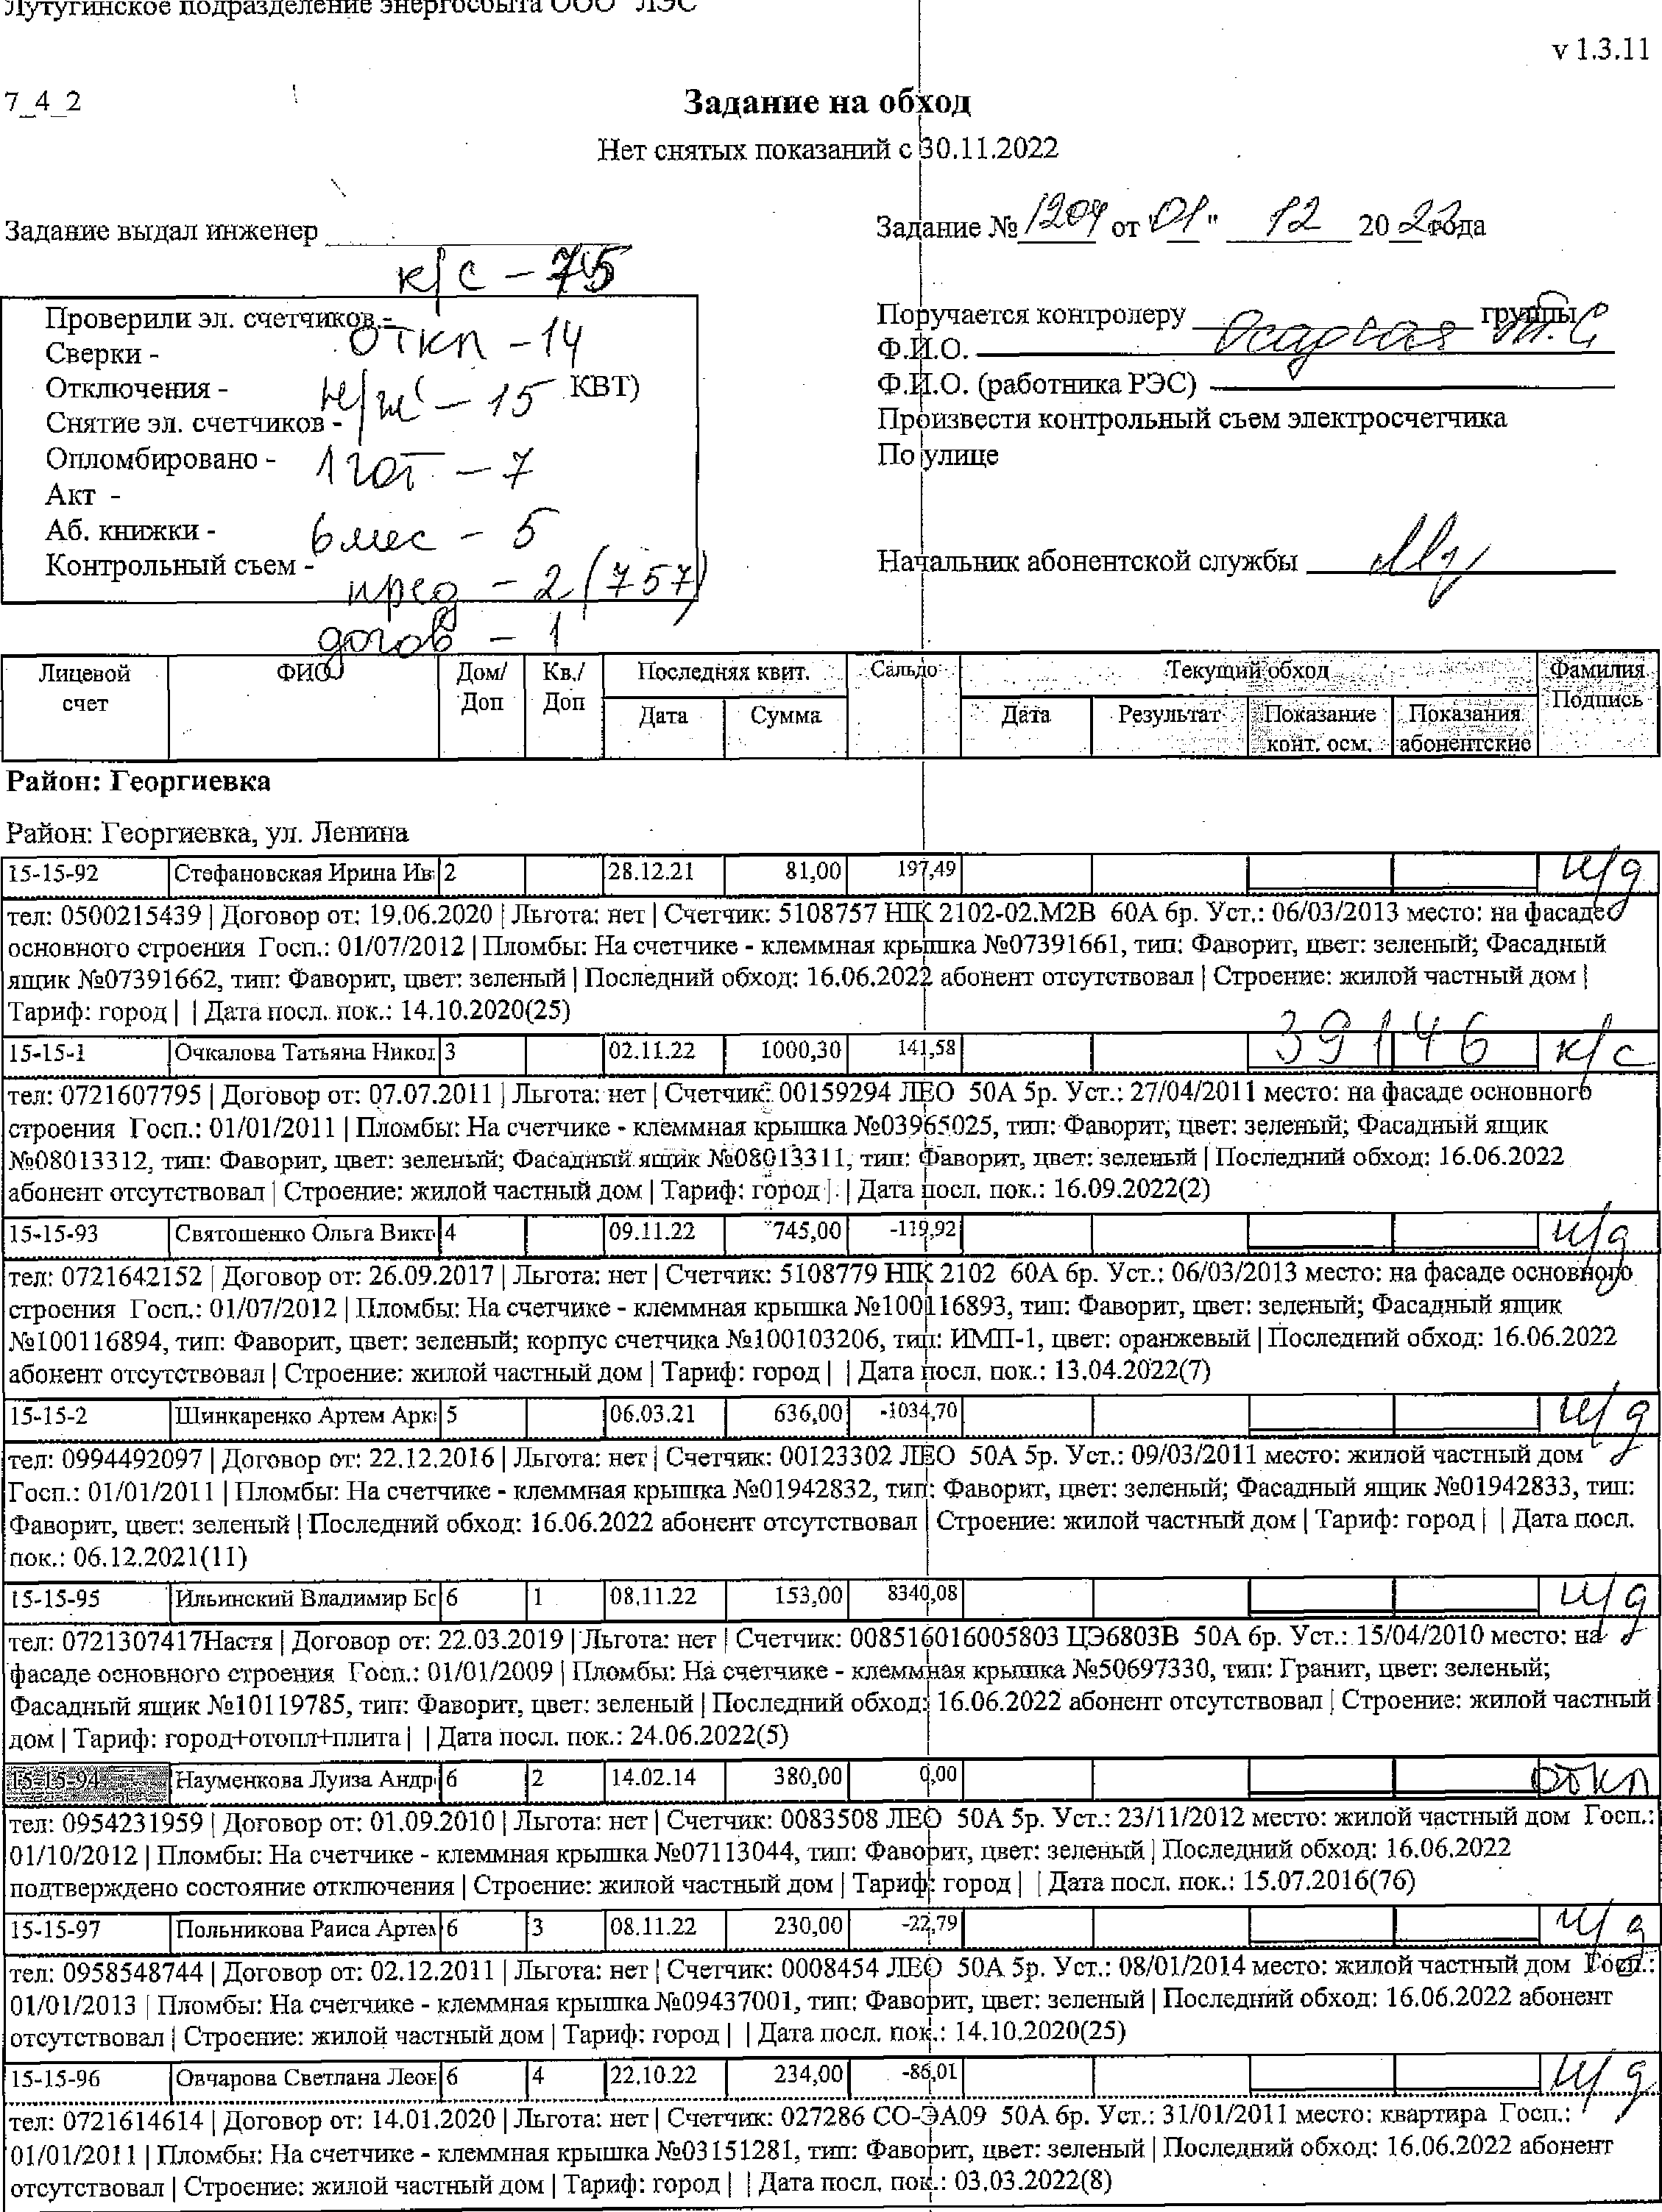 Лутугинское подразделение энергосбыта ООО "ЛЭС"
v 1.3.11
7_4_2
Задание на обход
Нет снятых показаний с 30.11.2022
Задание выдал инженер
Задание № 1204 от "01" 12 2022 года
к/с - 75
Проверили эл. счетчиков -
откл - 14
Сверки -
Отключения - КВТ)
н/ж - 15
Снятие эл. счетчиков -
Опломбировано -
1 год - 7
Акт -
Аб. книжки -
6 мес - 5
Контрольный съем -
пред - 2 (757)
догов - 1
Поручается контролеру группы
Ф.И.О.
Ф.И.О. (работника РЭС)
Произвести контрольный съем электросчетчика
По улице
Начальник абонентской службы
Лицевой счет | ФИО | Дом/ Доп | Кв./ Доп | Последняя квит. | Сальдо | Текущий обход | Фамилия Подпись
Дата | Сумма | Дата | Результат | Показание конт. осм. | Показания абонентские
Район: Георгиевка
Район: Георгиевка, ул. Ленина
15-15-92 Стефановская Ирина Ив 2 28.12.21 81,00 197,49 н/д
тел: 0500215439 | Договор от: 19.06.2020 | Льгота: нет | Счетчик: 5108757 НІК 2102-02.М2В 60А 6р. Уст.: 06/03/2013 место: на фасаде
основного строения Госп.: 01/07/2012 | Пломбы: На счетчике - клеммная крышка №07391661, тип: Фаворит, цвет: зеленый; Фасадный
ящик №07391662, тип: Фаворит, цвет: зеленый | Последний обход: 16.06.2022 абонент отсутствовал | Строение: жилой частный дом |
Тариф: город | | Дата посл. пок.: 14.10.2020(25)
15-15-1 Очкалова Татьяна Никол 3 02.11.22 1000,30 141,58 39146 к/с
тел: 0721607795 | Договор от: 07.07.2011 | Льгота: нет | Счетчик: 00159294 ЛЕО 50А 5р. Уст.: 27/04/2011 место: на фасаде основного
строения Госп.: 01/01/2011 | Пломбы: На счетчике - клеммная крышка №03965025, тип: Фаворит, цвет: зеленый; Фасадный ящик
№08013312, тип: Фаворит, цвет: зеленый; Фасадный ящик №08013311, тип: Фаворит, цвет: зеленый | Последний обход: 16.06.2022
абонент отсутствовал | Строение: жилой частный дом | Тариф: город | | Дата посл. пок.: 16.09.2022(2)
15-15-93 Святошенко Ольга Викт 4 09.11.22 745,00 -119,92 н/д
тел: 0721642152 | Договор от: 26.09.2017 | Льгота: нет | Счетчик: 5108779 НІК 2102 60А 6р. Уст.: 06/03/2013 место: на фасаде основного
строения Госп.: 01/07/2012 | Пломбы: На счетчике - клеммная крышка №100116893, тип: Фаворит, цвет: зеленый; Фасадный ящик
№100116894, тип: Фаворит, цвет: зеленый; корпус счетчика №100103206, тип: ИМП-1, цвет: оранжевый | Последний обход: 16.06.2022
абонент отсутствовал | Строение: жилой частный дом | Тариф: город | | Дата посл. пок.: 13.04.2022(7)
15-15-2 Шинкаренко Артем Арк 5 06.03.21 636,00 -1034,70 н/д
тел: 0994492097 | Договор от: 22.12.2016 | Льгота: нет | Счетчик: 00123302 ЛЕО 50А 5р. Уст.: 09/03/2011 место: жилой частный дом
Госп.: 01/01/2011 | Пломбы: На счетчике - клеммная крышка №01942832, тип: Фаворит, цвет: зеленый; Фасадный ящик №01942833, тип:
Фаворит, цвет: зеленый | Последний обход: 16.06.2022 абонент отсутствовал | Строение: жилой частный дом | Тариф: город | | Дата посл.
пок.: 06.12.2021(11)
15-15-95 Ильинский Владимир Бо 6 1 08.11.22 153,00 8340,08 н/д
тел: 0721307417Настя | Договор от: 22.03.2019 | Льгота: нет | Счетчик: 008516016005803 ЦЭ6803В 50А 6р. Уст.: 15/04/2010 место: на
фасаде основного строения Госп.: 01/01/2009 | Пломбы: На счетчике - клеммная крышка №50697330, тип: Гранит, цвет: зеленый;
Фасадный ящик №10119785, тип: Фаворит, цвет: зеленый | Последний обход: 16.06.2022 абонент отсутствовал | Строение: жилой частный
дом | Тариф: город+отопл+плита | | Дата посл. пок.: 24.06.2022(5)
15-15-94 Науменкова Луиза Андр 6 2 14.02.14 380,00 0,00 откл
тел: 0954231959 | Договор от: 01.09.2010 | Льгота: нет | Счетчик: 0083508 ЛЕО 50А 5р. Уст.: 23/11/2012 место: жилой частный дом Госп.:
01/10/2012 | Пломбы: На счетчике - клеммная крышка №07113044, тип: Фаворит, цвет: зеленый | Последний обход: 16.06.2022
подтверждено состояние отключения | Строение: жилой частный дом | Тариф: город | | Дата посл. пок.: 15.07.2016(76)
15-15-97 Польникова Раиса Артем 6 3 08.11.22 230,00 -22,79 н/д
тел: 0958548744 | Договор от: 02.12.2011 | Льгота: нет | Счетчик: 0008454 ЛЕО 50А 5р. Уст.: 08/01/2014 место: жилой частный дом Госп.:
01/01/2013 | Пломбы: На счетчике - клеммная крышка №09437001, тип: Фаворит, цвет: зеленый | Последний обход: 16.06.2022 абонент
отсутствовал | Строение: жилой частный дом | Тариф: город | | Дата посл. пок.: 14.10.2020(25)
15-15-96 Овчарова Светлана Леон 6 4 22.10.22 234,00 -86,01 н/д
тел: 0721614614 | Договор от: 14.01.2020 | Льгота: нет | Счетчик: 027286 СО-ЭА09 50А 6р. Уст.: 31/01/2011 место: квартира Госп.:
01/01/2011 | Пломбы: На счетчике - клеммная крышка №03151281, тип: Фаворит, цвет: зеленый | Последний обход: 16.06.2022 абонент
отсутствовал | Строение: жилой частный дом | Тариф: город | | Дата посл. пок.: 03.03.2022(8)